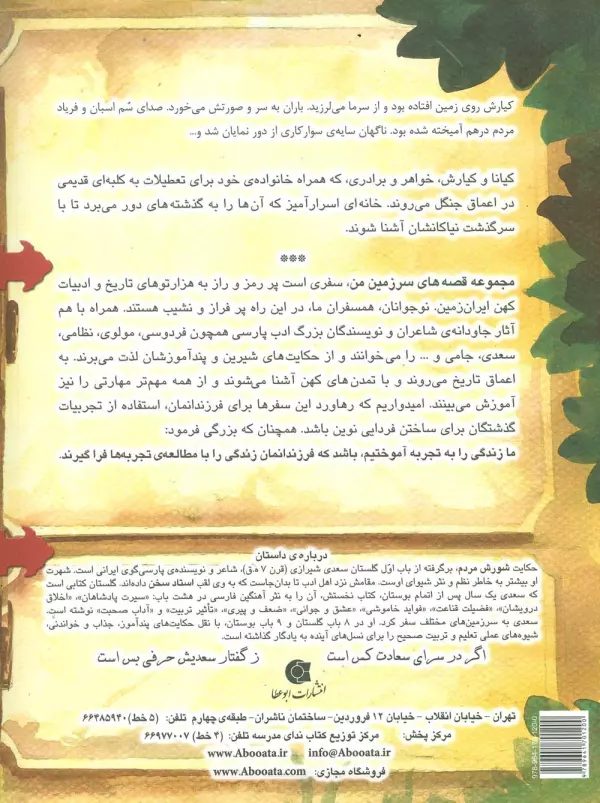 کیارش روی زمین افتاده بود و از سرما می‌لرزید. باران به سر و صورتش می‌خورد. صدای سُم اسبان و فریاد
مردم درهم آمیخته شده بود. ناگهان سایه‌ی سوارکاری از دور نمایان شد و...
کیانا و کیارش، خواهر و برادری، که همراه خانواده‌ی خود برای تعطیلات به کلبه‌ای قدیمی
در اعماق جنگل می‌روند. خانه‌ای اسرارآمیز که آن‌ها را به گذشته‌های دور می‌برد تا با
سرگذشت نیاکانشان آشنا شوند.
***
مجموعه قصه‌های سرزمین من، سفری است پر رمز و راز به هزارتوهای تاریخ و ادبیات
کهن ایران‌زمین. نوجوانان، همسفران ما، در این راه پر فراز و نشیب هستند. همراه با هم
آثار جاودانه‌ی شاعران و نویسندگان بزرگ ادب پارسی همچون فردوسی، مولوی، نظامی،
سعدی، جامی و ... را می‌خوانند و از حکایت‌های شیرین و پندآموزشان لذت می‌برند. به
اعماق تاریخ می‌روند و با تمدن‌های کهن آشنا می‌شوند و از همه مهم‌تر مهارتی را نیز
آموزش می‌بینند. امیدواریم که رهاورد این سفرها برای فرزندانمان، استفاده از تجربیات
گذشتگان برای ساختن فردایی نوین باشد. همچنان که بزرگی فرمود:
ما زندگی را به تجربه آموختیم، باشد که فرزندانمان زندگی را با مطالعه‌ی تجربه‌ها فرا گیرند.
درباره‌ی داستان
حکایت شورش مردم، برگرفته از باب اوّل گلستان سعدی شیرازی (قرن ۷ ه.ق)، شاعر و نویسنده‌ی پارسی‌گوی ایرانی است. شهرت
او بیشتر به خاطر نظم و نثر شیوای اوست. مقامش نزد اهل ادب تا بدان‌جاست که به وی لقب استاد سخن داده‌اند. گلستان کتابی است
که سعدی یک سال پس از اتمام بوستان، کتاب نخستش، آن را به نثر آهنگین فارسی در هشت باب: «سیرت پادشاهان»، «اخلاق
درویشان»، «فضیلت قناعت»، «فواید خاموشی»، «عشق و جوانی»، «ضعف و پیری»، «تأثیر تربیت» و «آداب صحبت» نوشته است.
سعدی به سرزمین‌های مختلف سفر کرد. او در ۸ باب گلستان و ۹ باب بوستان، با نقل حکایت‌های پندآموز، جذاب و خواندنی،
شیوه‌های عملی تعلیم و تربیت صحیح را برای نسل‌های آینده به یادگار گذاشته است.
اگر در سرای سعادت کس است ز گفتار سعدیش حرفی بس است
انتشارات ابوعطا
تهران - خیابان انقلاب - خیابان ۱۲ فروردین- ساختمان ناشران- طبقه‌ی چهارم تلفن: (۵ خط) ۶۶۴۸۵۹۴۰
مرکز پخش: مرکز توزیع کتاب ندای مدرسه تلفن: (۴ خط) ۶۶۹۷۷۰۰۷
www.Abooata.ir info@Abooata.ir
فروشگاه مجازی: www.Abooata.com